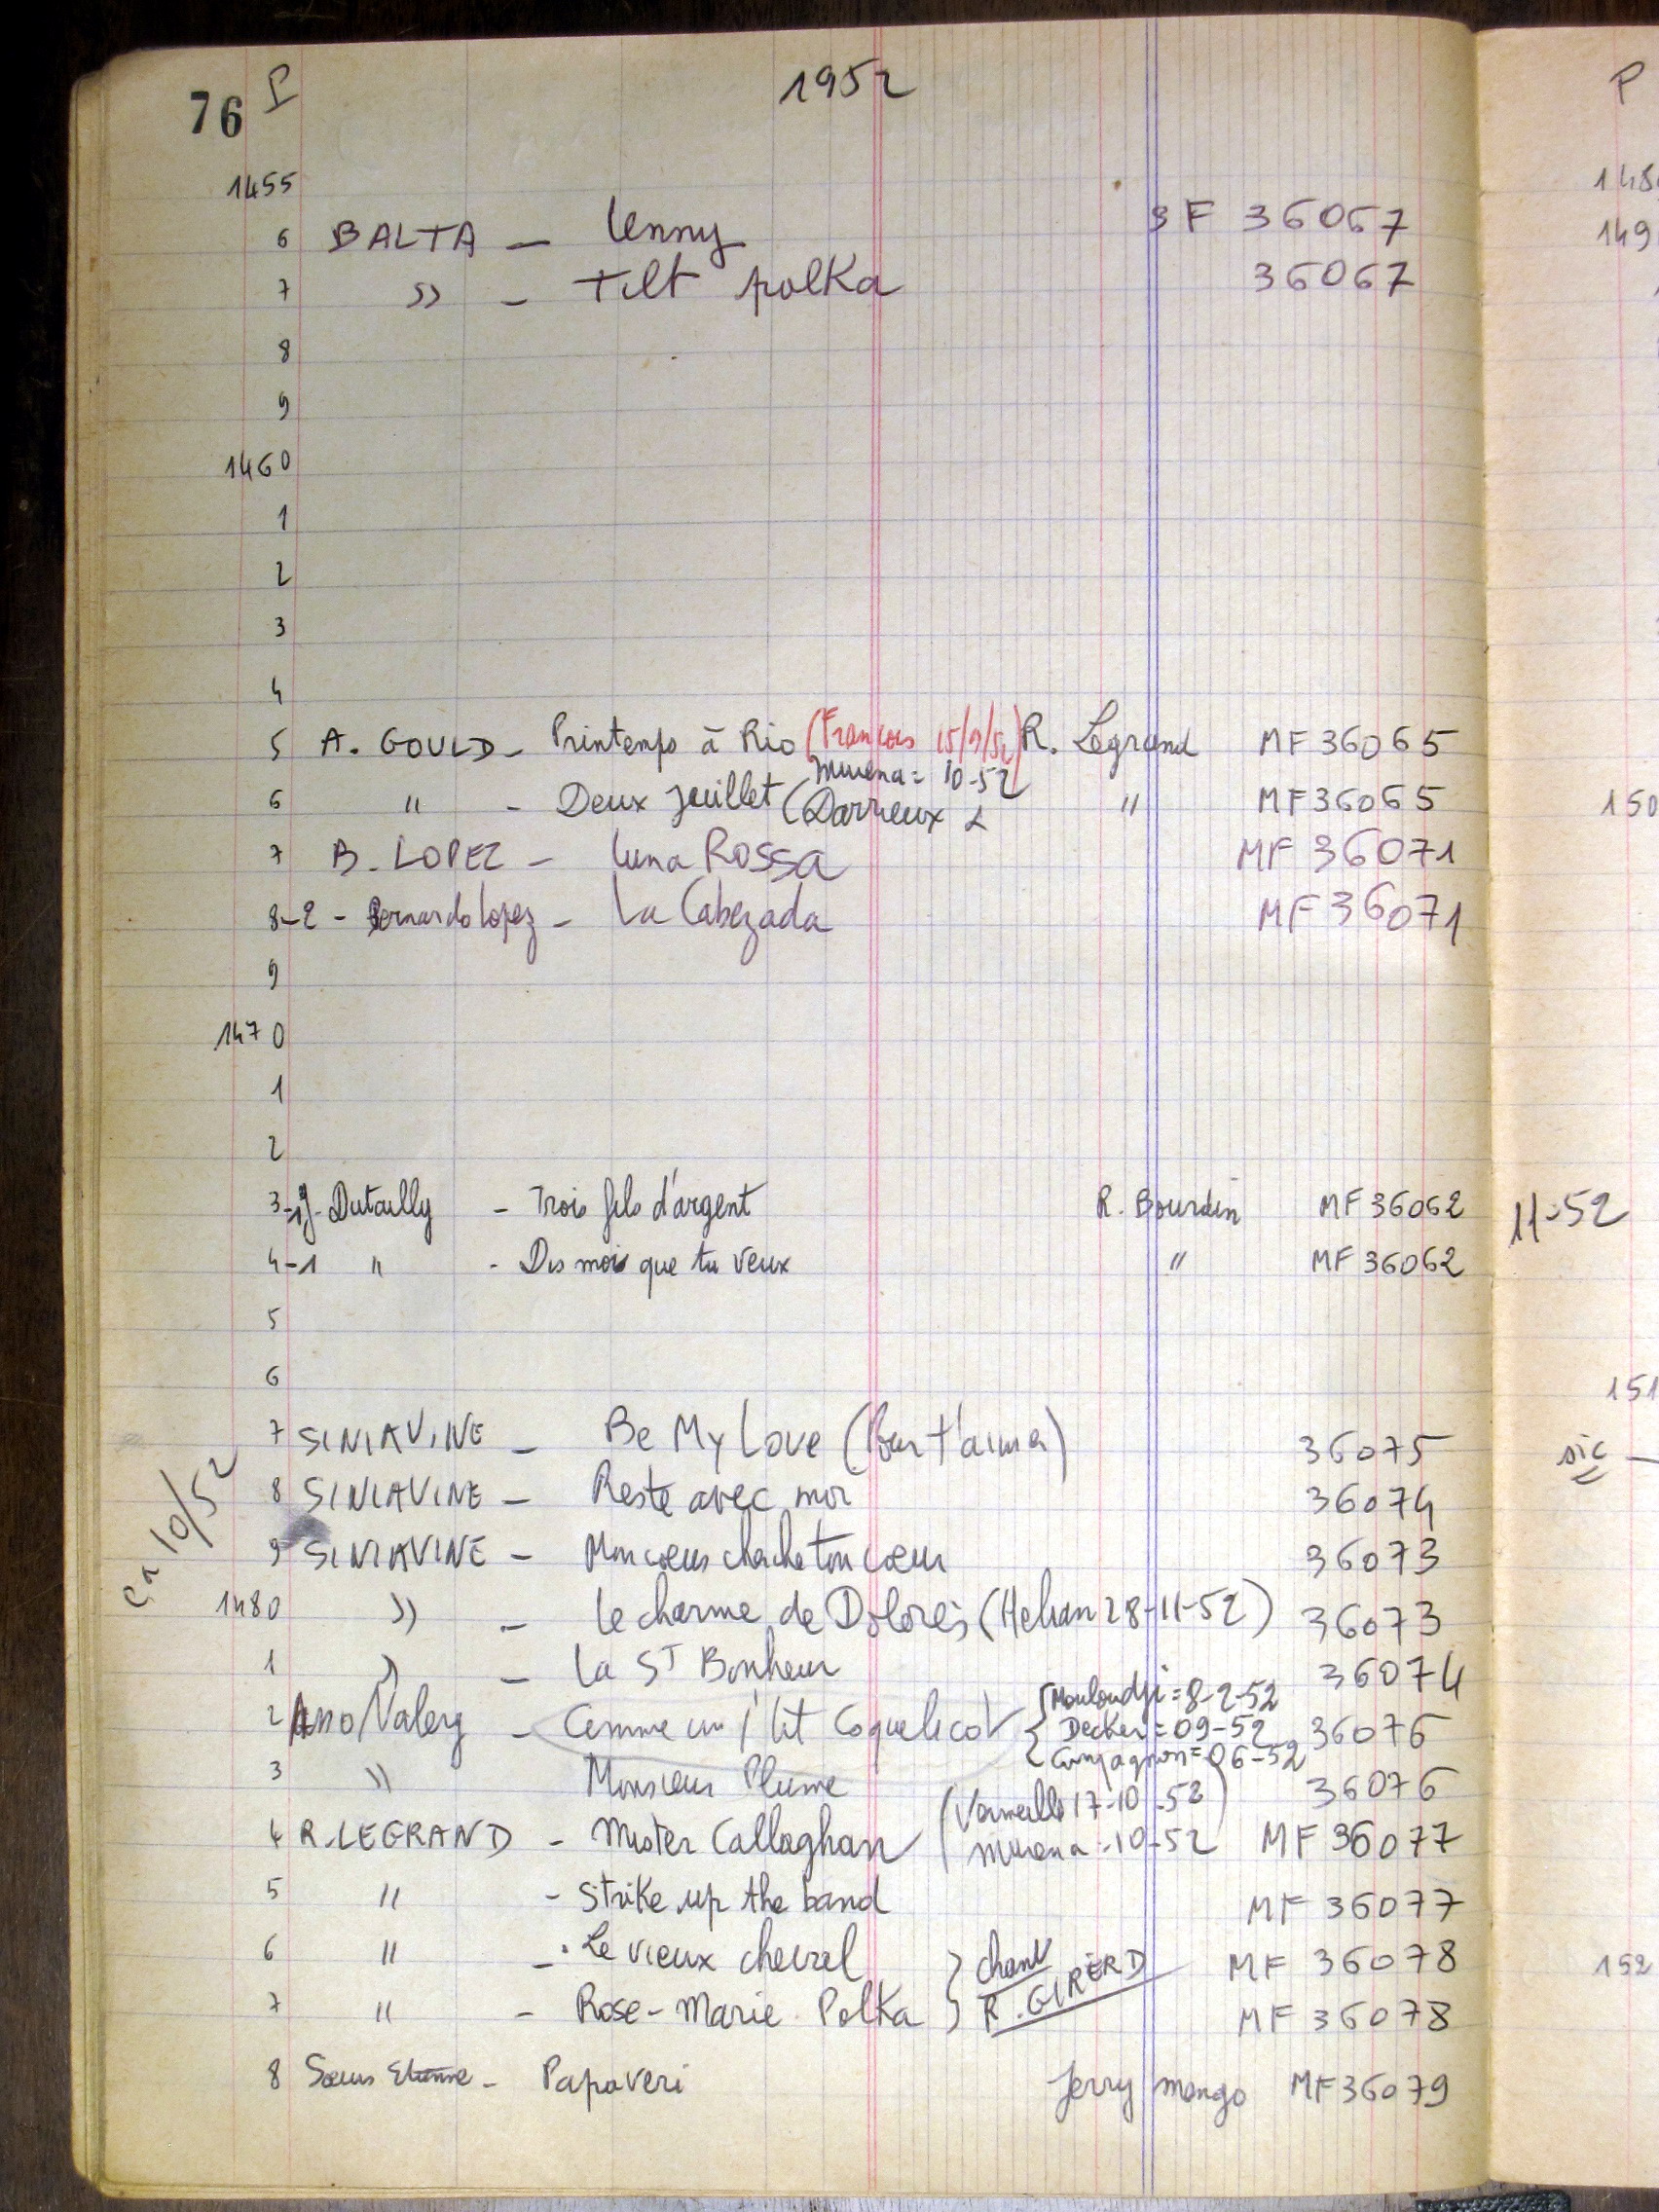 76 P 1952
1455
6 BALTA - Lenny SF 36067
7 " - Tilt polka 36067
8
9
1460
1
2
3
4
5 A. GOULD - Printemps à Rio (François 15/9/52) R. Legrand MF 36065
Murena = 10-52
6 " - Deux Juillet (Darrieux " MF 36065
7 B. LOPEZ - Luna ROSSA MF 36071
8-2 - Bernardo Lopez - La Cabezada MF 36071
9
1470
1
2
3-1 J. Dutailly - Trois fils d'argent R. Bourdin MF 36062 11-52
4-1 " - Dis moi que tu veux " MF 36062
5
6
7 SINIAVINE - Be My Love (Pour t'aimer) 36075
8 SINIAVINE - Reste avec moi 36074
9 SINIAVINE - Mon coeur cherche ton coeur 36073
Ca 10/52
1480 " - Le charme de Dolorès (Helian 28-11-52) 36073
1 " - La St Bonheur 36074
2 Valery - Comme un p'tit Coquelicot { Mouloudji = 8-2-52 36076
Decker = 09-52
Compagnon = 06-52
3 " Monsieur Plume 36076
4 R. LEGRAND - Mister Callaghan (Vermeille 17-10-52) MF 36077
Murena - 10-52
5 " - Strike up the band MF 36077
6 " - Le vieux cheval } chant MF 36078
7 " - Rose-Marie Polka } R. GIRERD MF 36078
8 Soeurs Etienne - Papaveri Jerry mengo MF 36079
P
149
150
151
sic -
152